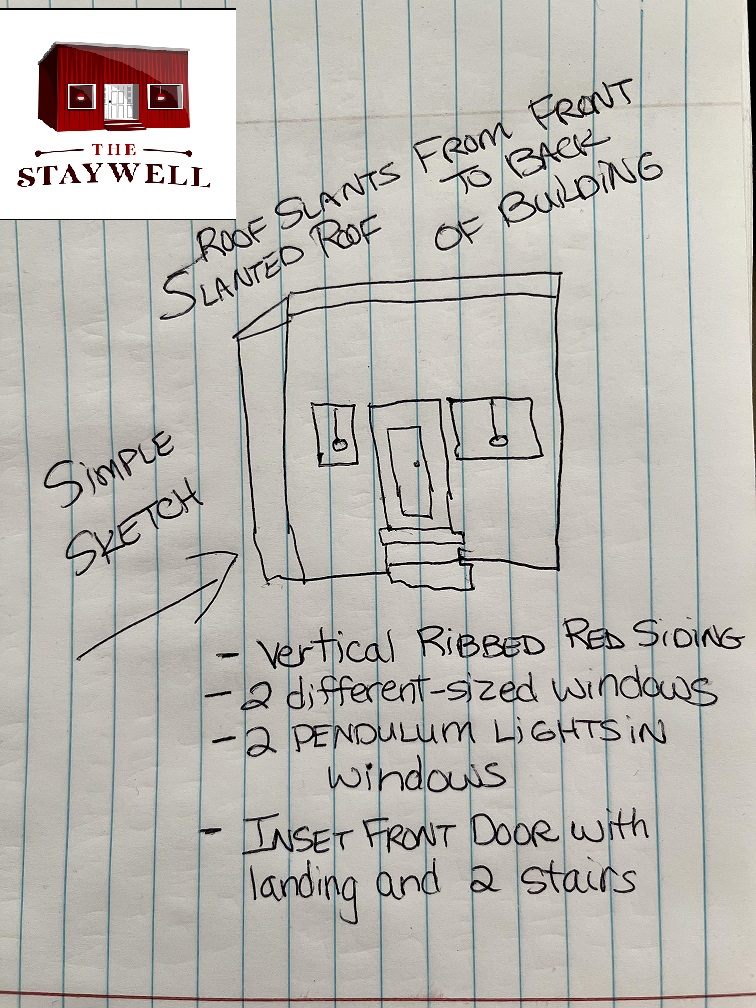 THE
STAYWELL
ROOF SLANTS FROM FRONT
SLANTED ROOF TO BACK
OF BUILDING
SIMPLE
SKETCH
- vertical RIBBED RED SIDING
- 2 different-sized windows
- 2 PENDULUM LIGHTS iN
windows
- INSET FRONT DOOR with
landing and 2 stairs